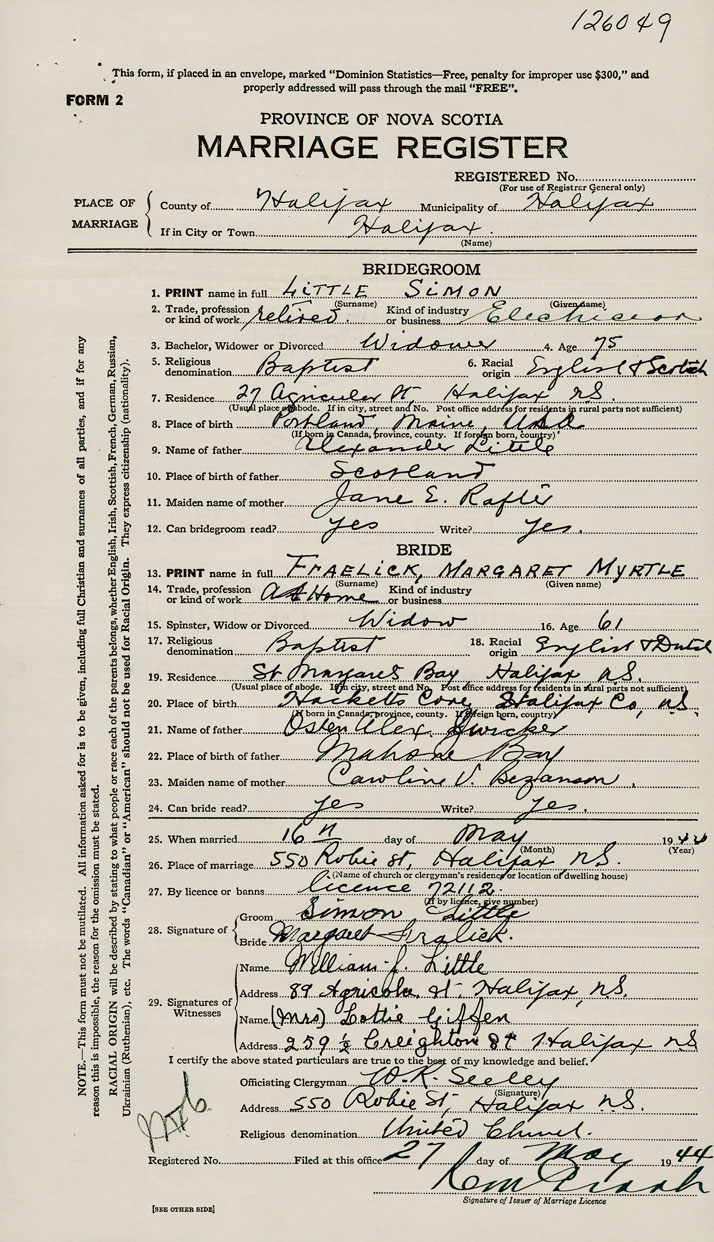 126049
This form, if placed in an envelope, marked "Dominion Statistics—Free, penalty for improper use $300," and
properly addressed will pass through the mail "FREE".
FORM 2
PROVINCE OF NOVA SCOTIA
MARRIAGE REGISTER
REGISTERED No.
(For use of Registrar General only)
PLACE OF MARRIAGE
County of Halifax Municipality of Halifax
If in City or Town Halifax.
(Name)
BRIDEGROOM
1. PRINT name in full LITTLE SIMON
(Surname) (Given name)
2. Trade, profession or kind of work retired. Kind of industry or business Electrician
3. Bachelor, Widower or Divorced Widower 4. Age 75
5. Religious denomination Baptist 6. Racial origin English & Scotish
7. Residence 27 Agricular St, Halifax N.S.
(Usual place of abode. If in city, street and No. Post office address for residents in rural parts not sufficient)
8. Place of birth Portland, Maine, USA
(If born in Canada, province, county. If foreign born, country)
9. Name of father Alexander Little
10. Place of birth of father Scotland
11. Maiden name of mother Jane E. Rafter
12. Can bridegroom read? yes Write? yes.
BRIDE
13. PRINT name in full FRAELICK, MARGARET MYRTLE
(Surname) (Given name)
14. Trade, profession or kind of work At Home Kind of industry or business
15. Spinster, Widow or Divorced Widow 16. Age 61
17. Religious denomination Baptist 18. Racial origin English & Dutch
19. Residence St Margaret Bay, Halifax N.S.
(Usual place of abode. If in city, street and No. Post office address for residents in rural parts not sufficient)
20. Place of birth Hacketts Cove, Halifax Co, N.S.
(If born in Canada, province, county. If foreign born, country)
21. Name of father Osten Alex. Dwicker
22. Place of birth of father Mahone Bay
23. Maiden name of mother Caroline V. Bezanson.
24. Can bride read? yes Write? yes.
25. When married 16th day of May 1944
(Month) (Year)
26. Place of marriage 550 Robie St, Halifax, N.S.
(Name of church or clergyman's residence or location of dwelling house)
27. By licence or banns licence 72112.
(If by licence, give number)
28. Signature of Groom Simon Little
Bride Margaret Fralick.
29. Signatures of Witnesses
Name William J. Little
Address 89 Agricola St. Halifax, N.S.
Name (Mrs) Lottie Giffen
Address 259 ½ Creighton St Halifax NS
I certify the above stated particulars are true to the best of my knowledge and belief.
Officiating Clergyman W. R. Seeley
(Signature)
Address 550 Robie St, Halifax N.S.
Religious denomination United Church.
Registered No. Filed at this office 27 day of May 1944
Signature of Issuer of Marriage Licence
[SEE OTHER SIDE]
NOTE.—This form must not be mutilated. All information asked for is to be given, including full Christian and surnames of all parties, and if for any
reason this is impossible, the reason for the omission must be stated.
RACIAL ORIGIN will be described by stating to what people or race each of the parents belongs, whether English, Irish, Scottish, French, German, Russian,
Ukrainian (Ruthenian), etc. The words "Canadian" or "American" should not be used for Racial Origin. They express citizenship (nationality).